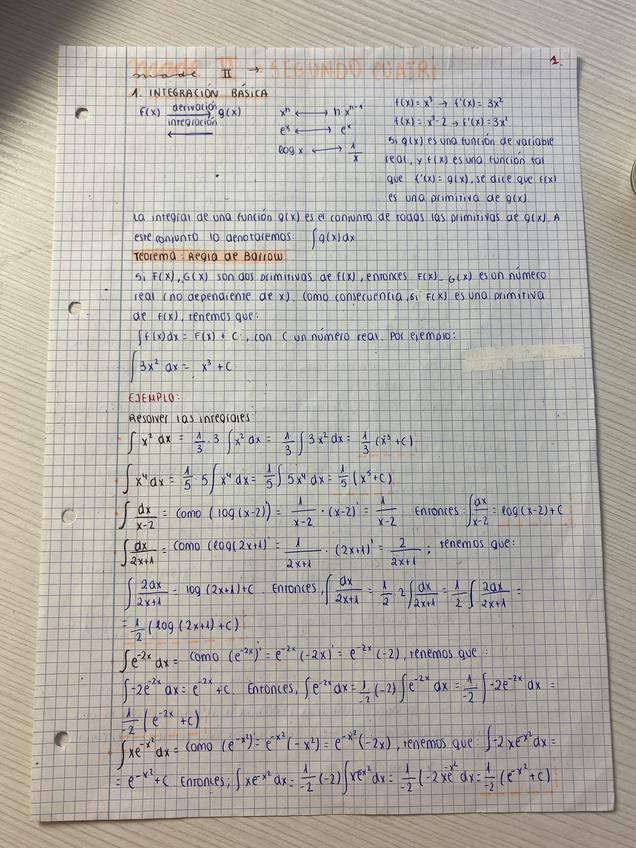 1.
made II → SEGUNDO CUATRI
1. INTEGRACIÓN BÁSICA
F(x) derivación → g(x)
integración ←
xⁿ ⟷ n xⁿ⁻¹
eˣ ⟷ eˣ
log x ⟷ 1/x
f(x) = x³ → f'(x) = 3x²
f(x) = x³-2 → f'(x) = 3x²
Si g(x) es una función de variable
real, y f(x) es una función tal
que f'(x) = g(x), se dice que f(x)
es una primitiva de g(x)
La integral de una función g(x) es el conjunto de todas las primitivas de g(x). A
este conjunto lo denotaremos: ∫g(x)dx
Teorema: Regla de Barrow
Si F(x), G(x) son dos primitivas de f(x), entonces F(x)-G(x) es un número
real (no dependiente de x). Como consecuencia, si F(x) es una primitiva
de f(x), tenemos que:
∫f(x)dx = F(x) + C, con C un número real. Por ejemplo:
∫3x² dx = x³ + C
EJEMPLO:
Resolver las integrales:
∫x² dx = 1/3 · 3 ∫x² dx = 1/3 ∫3x² dx = 1/3 (x³ + C)
∫x⁴ dx = 1/5 · 5 ∫x⁴ dx = 1/5 ∫5x⁴ dx = 1/5 (x⁵ + C)
∫dx/(x-2) = como (log(x-2))' = 1/(x-2) · (x-2)' = 1/(x-2) Entonces: ∫dx/(x-2) = log(x-2) + C
∫dx/(2x+1) = como (log(2x+1)' = 1/(2x+1) · (2x+1)' = 2/(2x+1); tenemos que:
∫2dx/(2x+1) = log(2x+1) + C. Entonces, ∫dx/(2x+1) = 1/2 · 2∫dx/(2x+1) = 1/2 ∫2dx/(2x+1) =
= 1/2 (log(2x+1) + C)
∫e⁻²ˣ dx = como (e⁻²ˣ)' = e⁻²ˣ(-2x)' = e⁻²ˣ(-2), tenemos que:
∫-2e⁻²ˣ dx = e⁻²ˣ + C. Entonces, ∫e⁻²ˣ dx = 1/-2 (-2) ∫e⁻²ˣ dx = 1/-2 ∫-2e⁻²ˣ dx =
1/-2 (e⁻²ˣ + C)
∫xe^-x² dx = como (e^-x²)' = e^-x²(-x²)' = e^-x²(-2x), tenemos que: ∫-2xe^-x² dx =
= e^-x² + C. Entonces, ∫xe^-x² dx = 1/-2 (-2) ∫xe^-x² dx = 1/-2 (-2xe^-x² dx = 1/-2 (e^-x² + C)